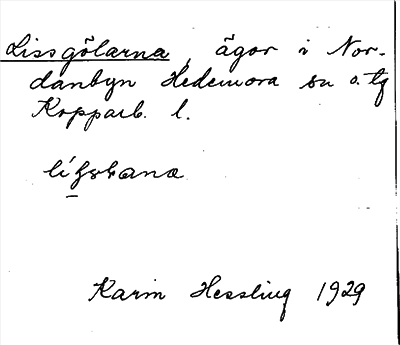 Lissgölarna, ägor i Nor-
danbyn Hedemora sn o. tg
Kopparb. l.
Karin Hessling 1929